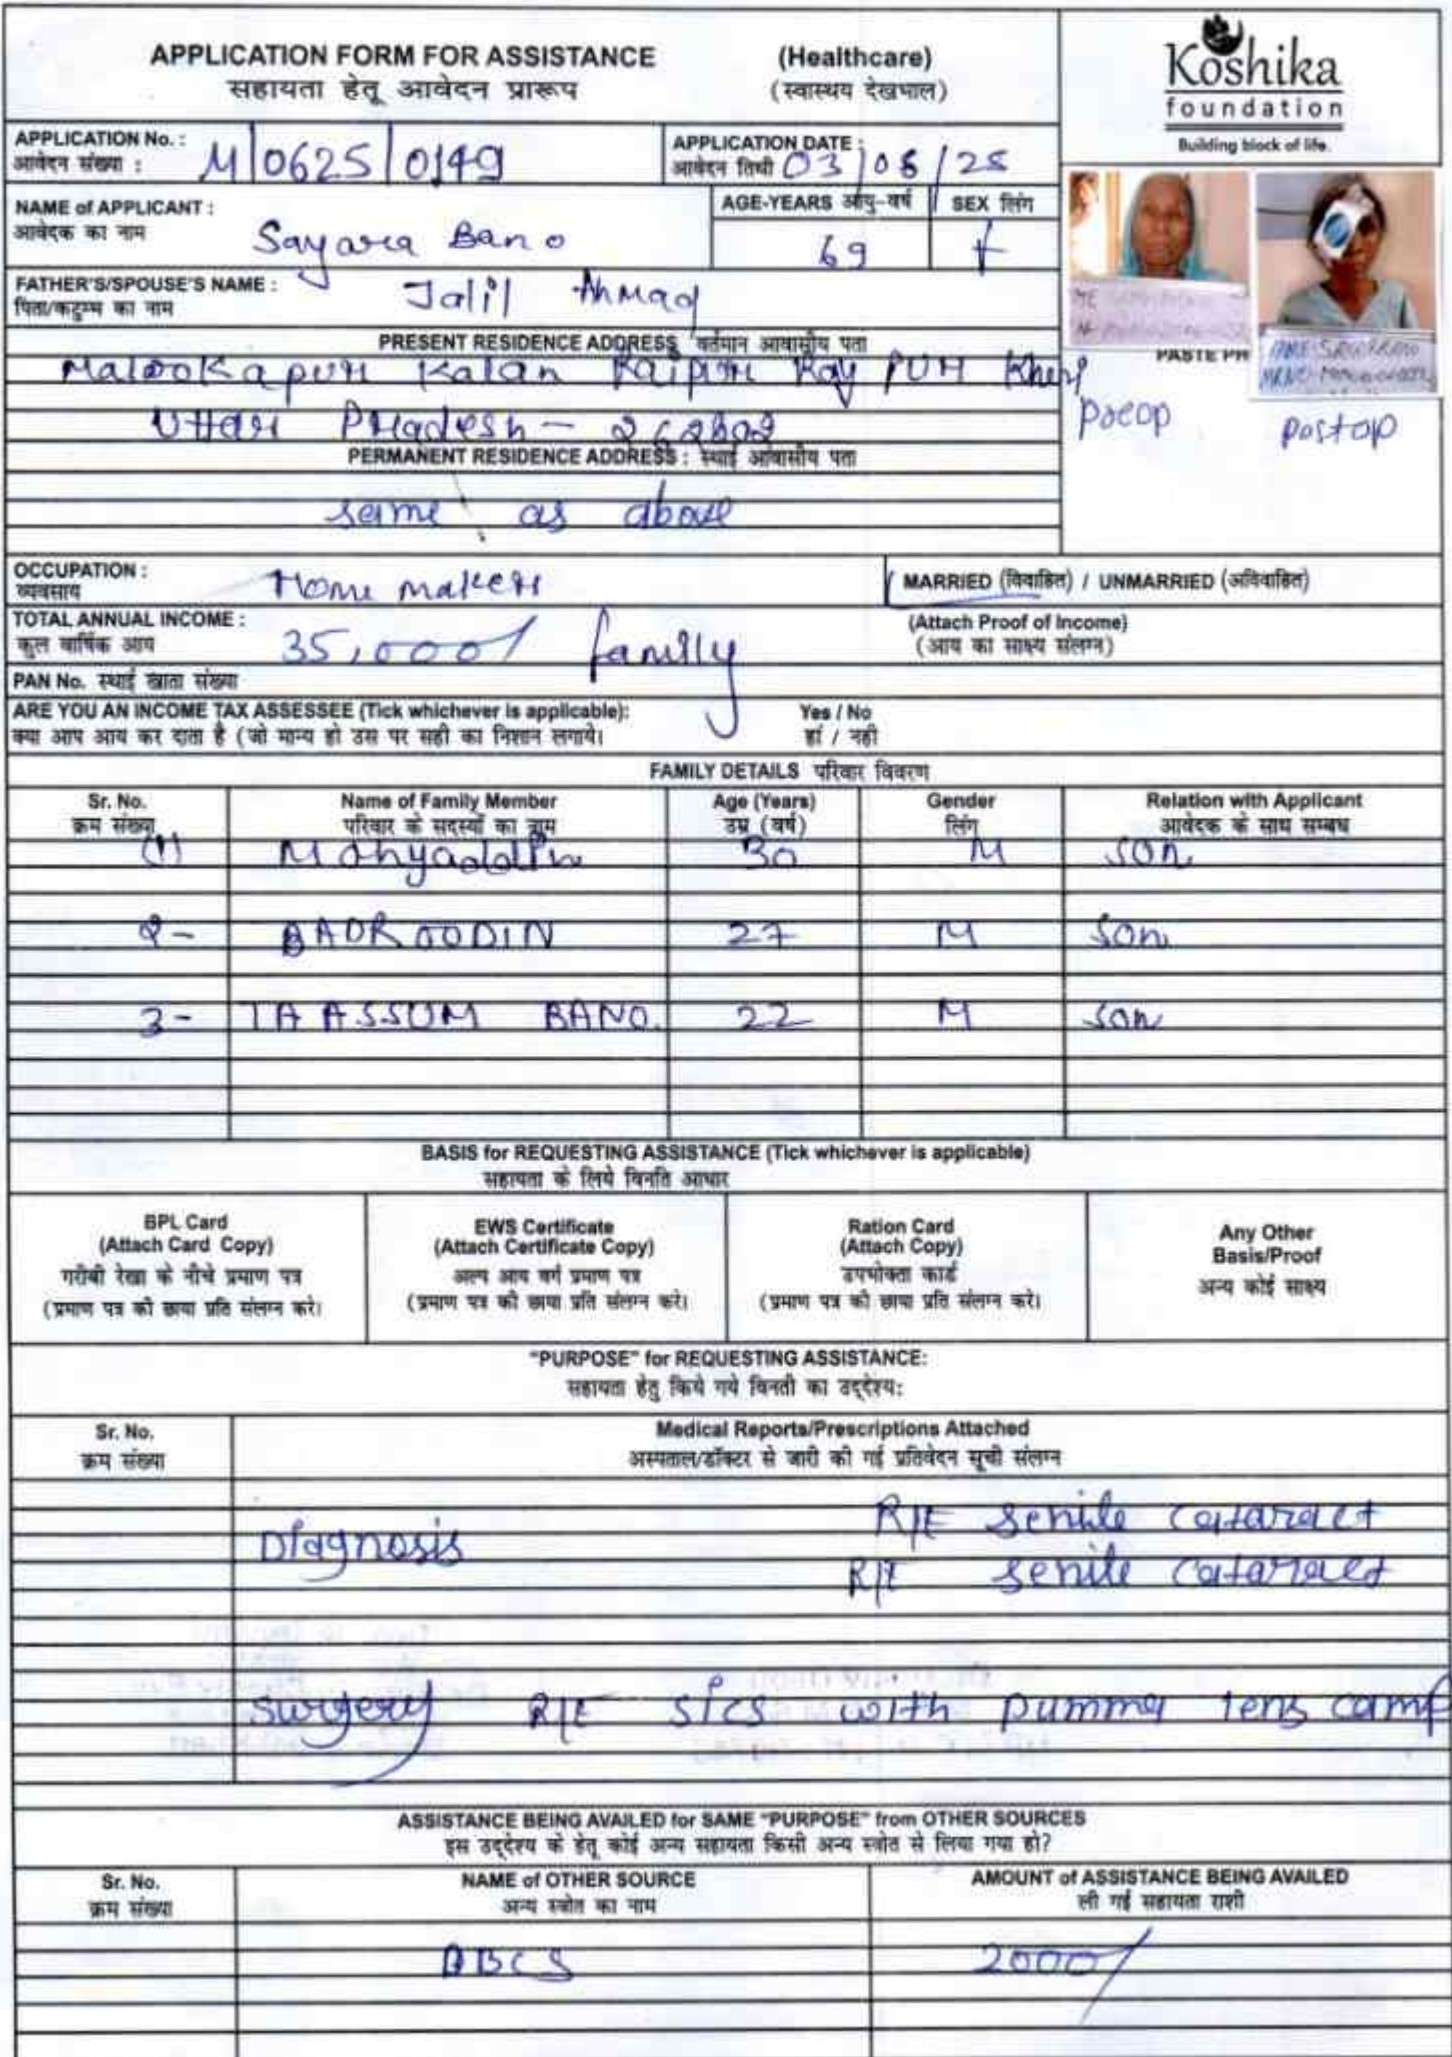 APPLICATION FORM FOR ASSISTANCE (Healthcare)
सहायता हेतू आवेदन प्रारूप (स्वास्थय देखभाल)
Koshika
foundation
Building block of life.
APPLICATION No. : M/0625/0149
आवेदन संख्या :
APPLICATION DATE : 03/06/25
आवेदन तिथी
NAME of APPLICANT : Sayara Bano
आवेदक का नाम
AGE-YEARS आयु-वर्ष 69
SEX लिंग f
FATHER'S/SPOUSE'S NAME : Jalil Ahmad
पिता/कटुम्ब का नाम
PRESENT RESIDENCE ADDRESS वर्तमान आवासीय पता
Malookapur Kalan Raipur Ray PUR Kheri
Uttar Pradesh - 262802
PASTE PH
preop postop
PERMANENT RESIDENCE ADDRESS : स्थाई आवासीय पता
same as above
OCCUPATION : Home maker
व्यवसाय
MARRIED (विवाहित) / UNMARRIED (अविवाहित)
TOTAL ANNUAL INCOME : 35,000/ family
कुल वार्षिक आय
(Attach Proof of Income)
(आय का साक्ष्य संलग्न)
PAN No. स्थाई खाता संख्या
ARE YOU AN INCOME TAX ASSESSEE (Tick whichever is applicable): Yes / No
क्या आप आय कर दाता है (जो मान्य हो उस पर सही का निशान लगाये। हां / नही
FAMILY DETAILS परिवार विवरण
Sr. No. Name of Family Member Age (Years) Gender Relation with Applicant
क्रम संख्या परिवार के सदस्यों का नाम उम्र (वर्ष) लिंग आवेदक के साथ सम्बध
(1) Mohyaddin 30 M son
2- BADROODIN 27 M Son
3- TAASSUM BANO. 22 M son
BASIS for REQUESTING ASSISTANCE (Tick whichever is applicable)
सहायता के लिये विनति आधार
BPL Card
(Attach Card Copy)
गरीबी रेखा के नीचे प्रमाण पत्र
(प्रमाण पत्र की छाया प्रति संलग्न करे।
EWS Certificate
(Attach Certificate Copy)
अल्प आय वर्ग प्रमाण पत्र
(प्रमाण पत्र की छाया प्रति संलग्न करे।
Ration Card
(Attach Copy)
उपभोक्ता कार्ड
(प्रमाण पत्र की छाया प्रति संलग्न करे।
Any Other
Basis/Proof
अन्य कोई साक्ष्य
"PURPOSE" for REQUESTING ASSISTANCE:
सहायता हेतु किये गये विनती का उद्देश्य:
Sr. No. Medical Reports/Prescriptions Attached
क्रम संख्या अस्पताल/डॉक्टर से जारी की गई प्रतिवेदन सूची संलग्न
R/E Senile Cataract
Diagnosis
R/E senile Cataract
surgery R/E SICS with pummy lens camp
ASSISTANCE BEING AVAILED for SAME "PURPOSE" from OTHER SOURCES
इस उद्देश्य के हेतू कोई अन्य सहायता किसी अन्य स्त्रोत से लिया गया हो?
Sr. No. NAME of OTHER SOURCE AMOUNT of ASSISTANCE BEING AVAILED
क्रम संख्या अन्य स्त्रोत का नाम ली गई सहायता राशी
DBCS 2000/